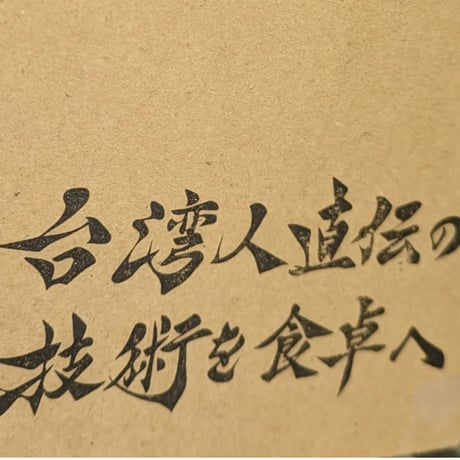 台湾人直伝の
技術を食卓へ